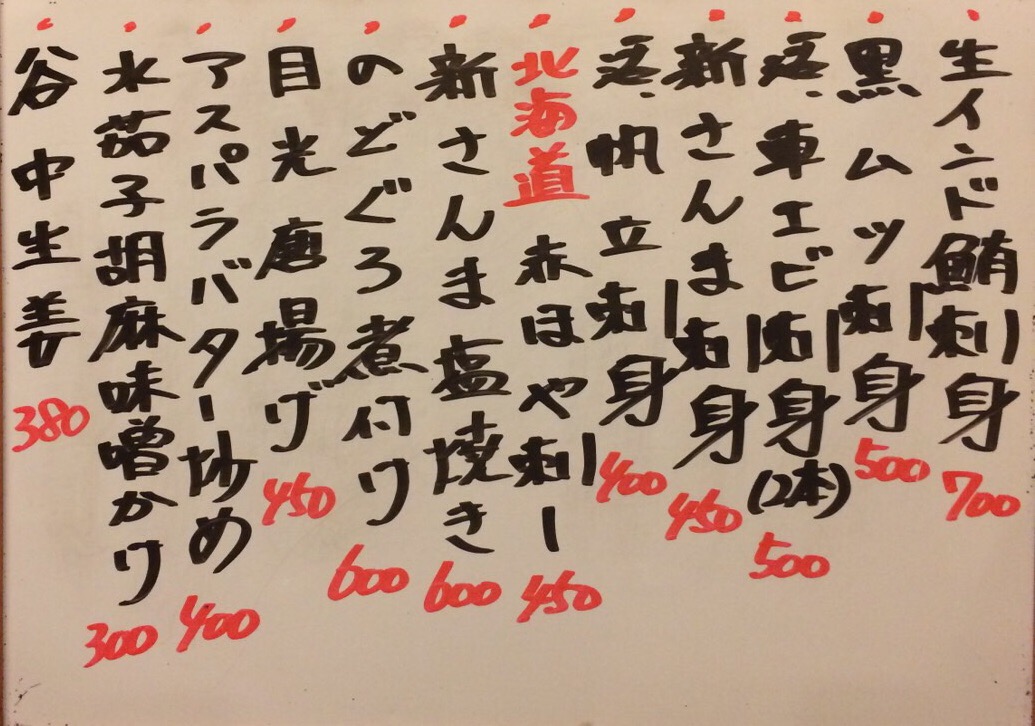 ・生インド鮪刺身 700
・黒ムツ刺身 500
・活車エビ刺身(2本) 500
・新さんま刺身 450
・活帆立刺身 400
・北海道 赤ほや刺し 450
・新さんま塩焼き 600
・のどぐろ煮付け 600
・目光唐揚げ 450
・アスパラバター炒め 400
・水茄子胡麻味噌かけ 300
・谷中生姜 380